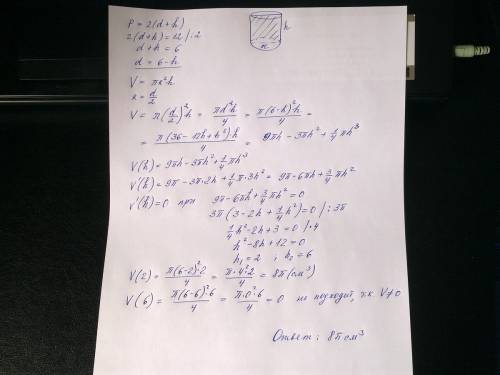 P = 2(d+h)
2(d+h) = 12 /:2
d+h = 6
d = 6-h
h
r
V = πr²h
r = d/2
V = π(d/2)²h = πd²h/4 = π(6-h)²h/4 =
= π(36-12h+h²)h/4 = 9πh - 3πh² + 1/4 πh³
V(h) = 9πh - 3πh² + 1/4 πh³
V'(h) = 9π - 3π·2h + 1/4 π·3h² = 9π - 6πh + 3/4 πh²
V'(h) = 0 при 9π - 6πh + 3/4 πh² = 0
3π(3 - 2h + 1/4 h²) = 0 /:3π
1/4 h² - 2h + 3 = 0 /·4
h² - 8h + 12 = 0
h₁ = 2, h₂ = 6
V(2) = π(6-2)²·2/4 = π·4²·2/4 = 8π (см³)
V(6) = π(6-6)²·6/4 = π·0²·6/4 = 0 не подходит, т.к. V≠0
Ответ: 8π см³